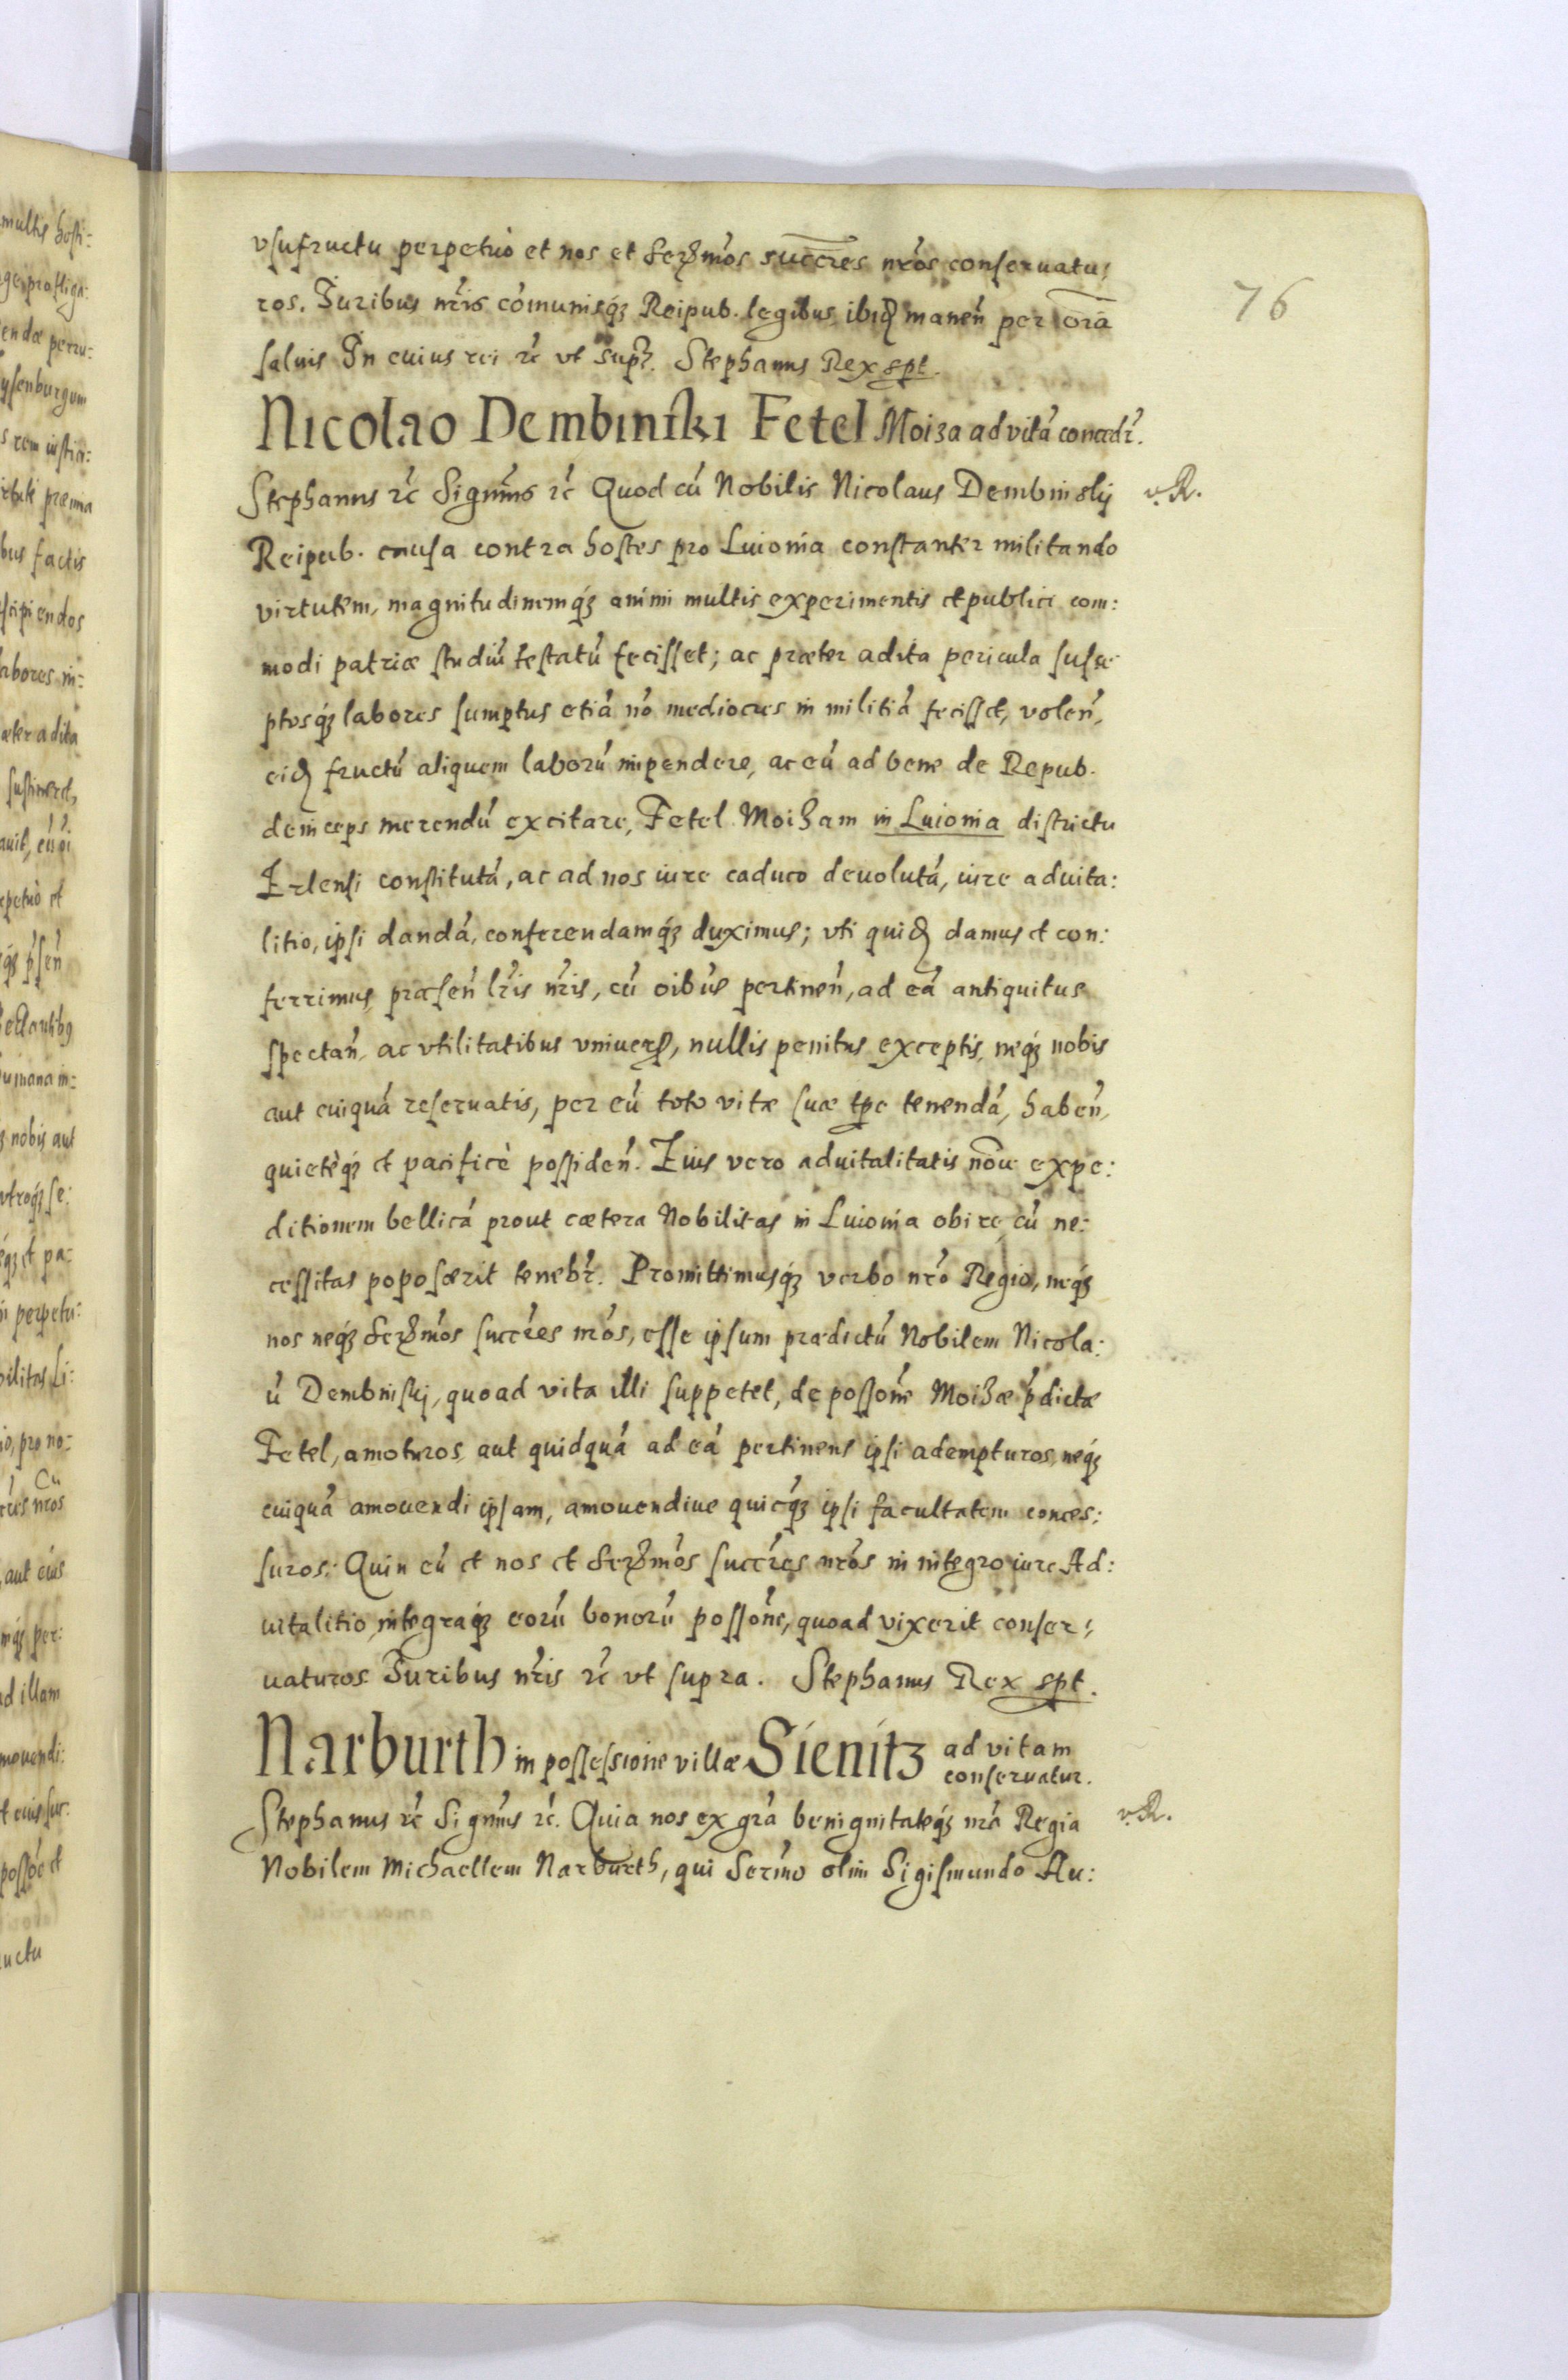 76
vsufructu perpetuò et nos et Serz̃mos succres nr̃os conseruatu:
ros. Iuribus nr̃is cõmunisq́ꝫ Reipub. legibus ibid manen̄ per om̄ia
saluis In cuius rei ⁊c̃ vt supr̃. Stephanus Rex sp̱t.
Nicolao Dembinſki Fetel Moiza ad vitã concedr̃.
Stephanus ⁊c̃ Signm̃s ⁊c̃ Quod cũ Nobilis Nicolaus Dembinskij
v. R.
Reipub. causa contra hostes pro Liuonia constanter militando
virtutem, magnitudinemq́ꝫ animi multis experimentis et publici com:
modi patriæ studiũ testatũ fecisset; ac præter adita pericula susce
ptosq́ꝫ labores sumptus etiã nõ mediocres in militiã fecisset, volen̄,
eid fructũ aliquem laborũ impendere, ac eũ ad bene de Repub.
deinceps merendũ excitare, Fetel Moizam in Liuonia districtu
Erlensi constitutã, ac ad nos iure caduco deuolutã, iure aduita:
litio, ipsi dandã, conferendamq́ꝫ duximus; vti quid damus et con:
ferrimus præsen̄ lr̃is nr̃is, cũ oĩbus pertinen̄, ad eã antiquitus
spectan̄, ac vtilitatibus vniuers, nullis penitus exceptis, neq́ꝫ nobis
aut cuiquã reseruatis, per eũ toto vitæ suæ tp̱e tenendã, haben̄,
quietèq́ꝫ et pacificè possiden̄. Eius vero aduitalitatis nõie expe:
ditionem bellicã prout cætera Nobilitas in Liuonia obire, cũ ne:
cessitas poposcerit tenebr̃. Promittimusq́ꝫ verbo nr̃o Regio, neq́ꝫ
nos neq́ꝫ Serz̃mos succr̃es nr̃os, esse ipsum prædictũ Nobilem Nicola:
ũ Dembniskj, quoad vita illi suppetet, de possõne Moizæ p̃dictæ
Fetel, amoturos, aut quidquã ad eã pertinens ipsi adempturos, neq́ꝫ
cuiquã amouendi ipsam, amouendiue quicq́ꝫ ipsi facultatem conces:
suros. Quin eũ et nos et Serz̃mos succr̃es nr̃os in integro iure Ad:
uitalitio, integraq́ꝫ eorũ bonorũ possõne, quoad vixerit conser:
uaturos. Iuribus nr̃is ⁊c̃ vt supra. Stephanus Rex sp̱t.
Narburth in possessione villæ Sienitz ad vitam
conseruatur.
Stephanus ⁊c̃ Signm̃s ⁊c̃. Quia nos ex gr̃a benignitateq́ꝫ nr̃a Regia
v. R.
Nobilem Michaellem Narburth, qui Serm̃o olim Sigismundo Au: